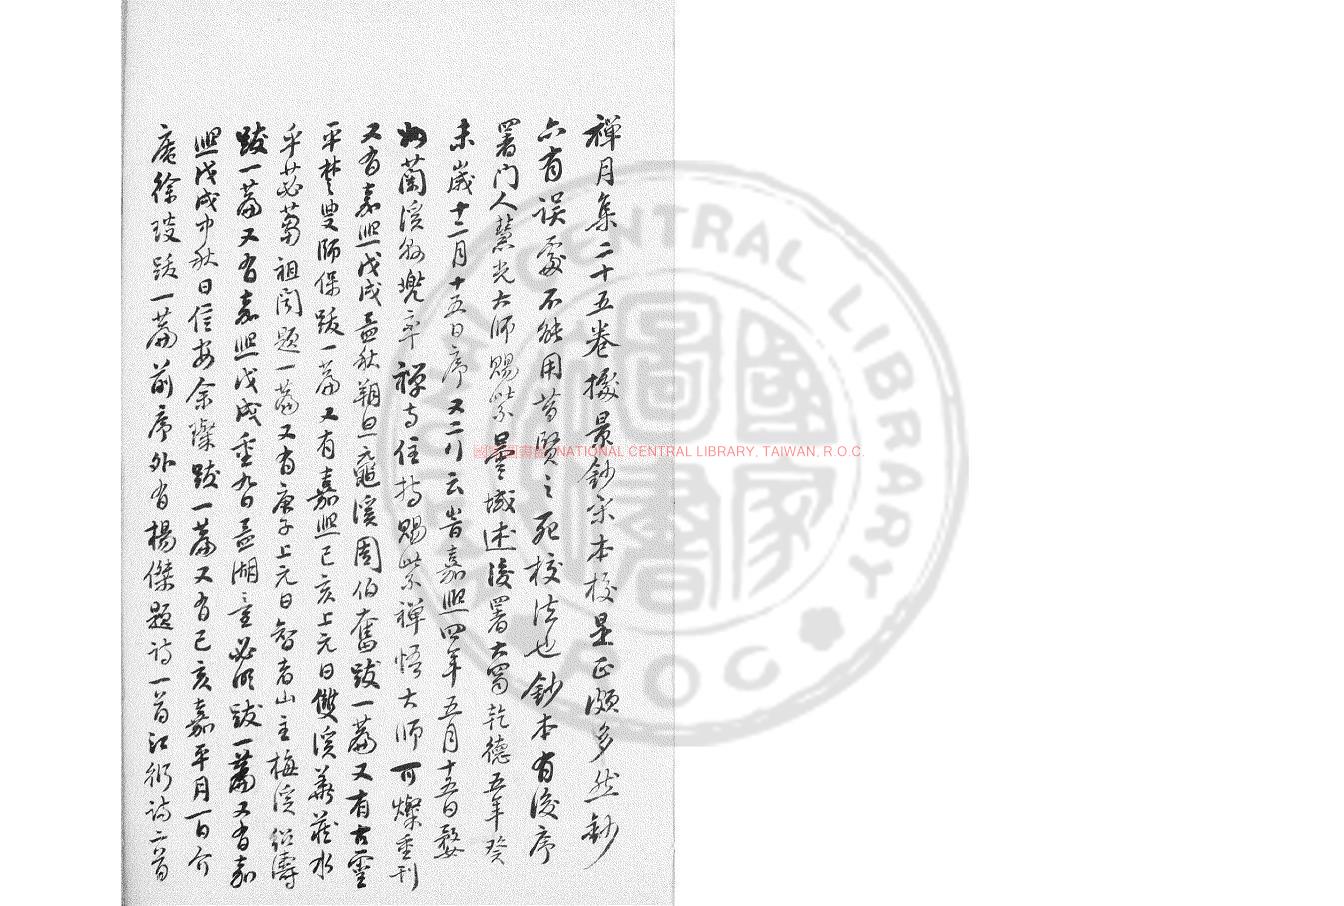 禪月集二十五卷據景鈔宋本校是正頗多然鈔
亦有誤處不能用昔賢之死校法也鈔本有後序
署門人慧光大師賜紫曇域述後署大蜀乾德五年癸
未歲十二月十五日序又二行云峕嘉熙四年五月十五日婺
州蘭溪縣兜率禪寺住持賜紫禪悟大師可燦重刊
又有嘉熙戊戌孟秋朔旦龜溪周伯奮跋一篇又有古靈
平楚豊師保跋一篇又有嘉熙己亥上元日雙溪華藏水
乎苾蒭祖聞題一篇又有庚子上元日智者山主梅溪紹濤
跋一篇又有嘉熙戊戌重九日孟湖童必明跋一篇又有嘉
熙戊戌中秋日信安余璨跋一篇又有己亥嘉平月一日介
庵徐琰跋一篇前序外有楊傑題詩一首江衍詩二首
國家圖書館 NATIONAL CENTRAL LIBRARY, TAIWAN, R.O.C.
NATIONAL CENTRAL LIBRARY
ROC